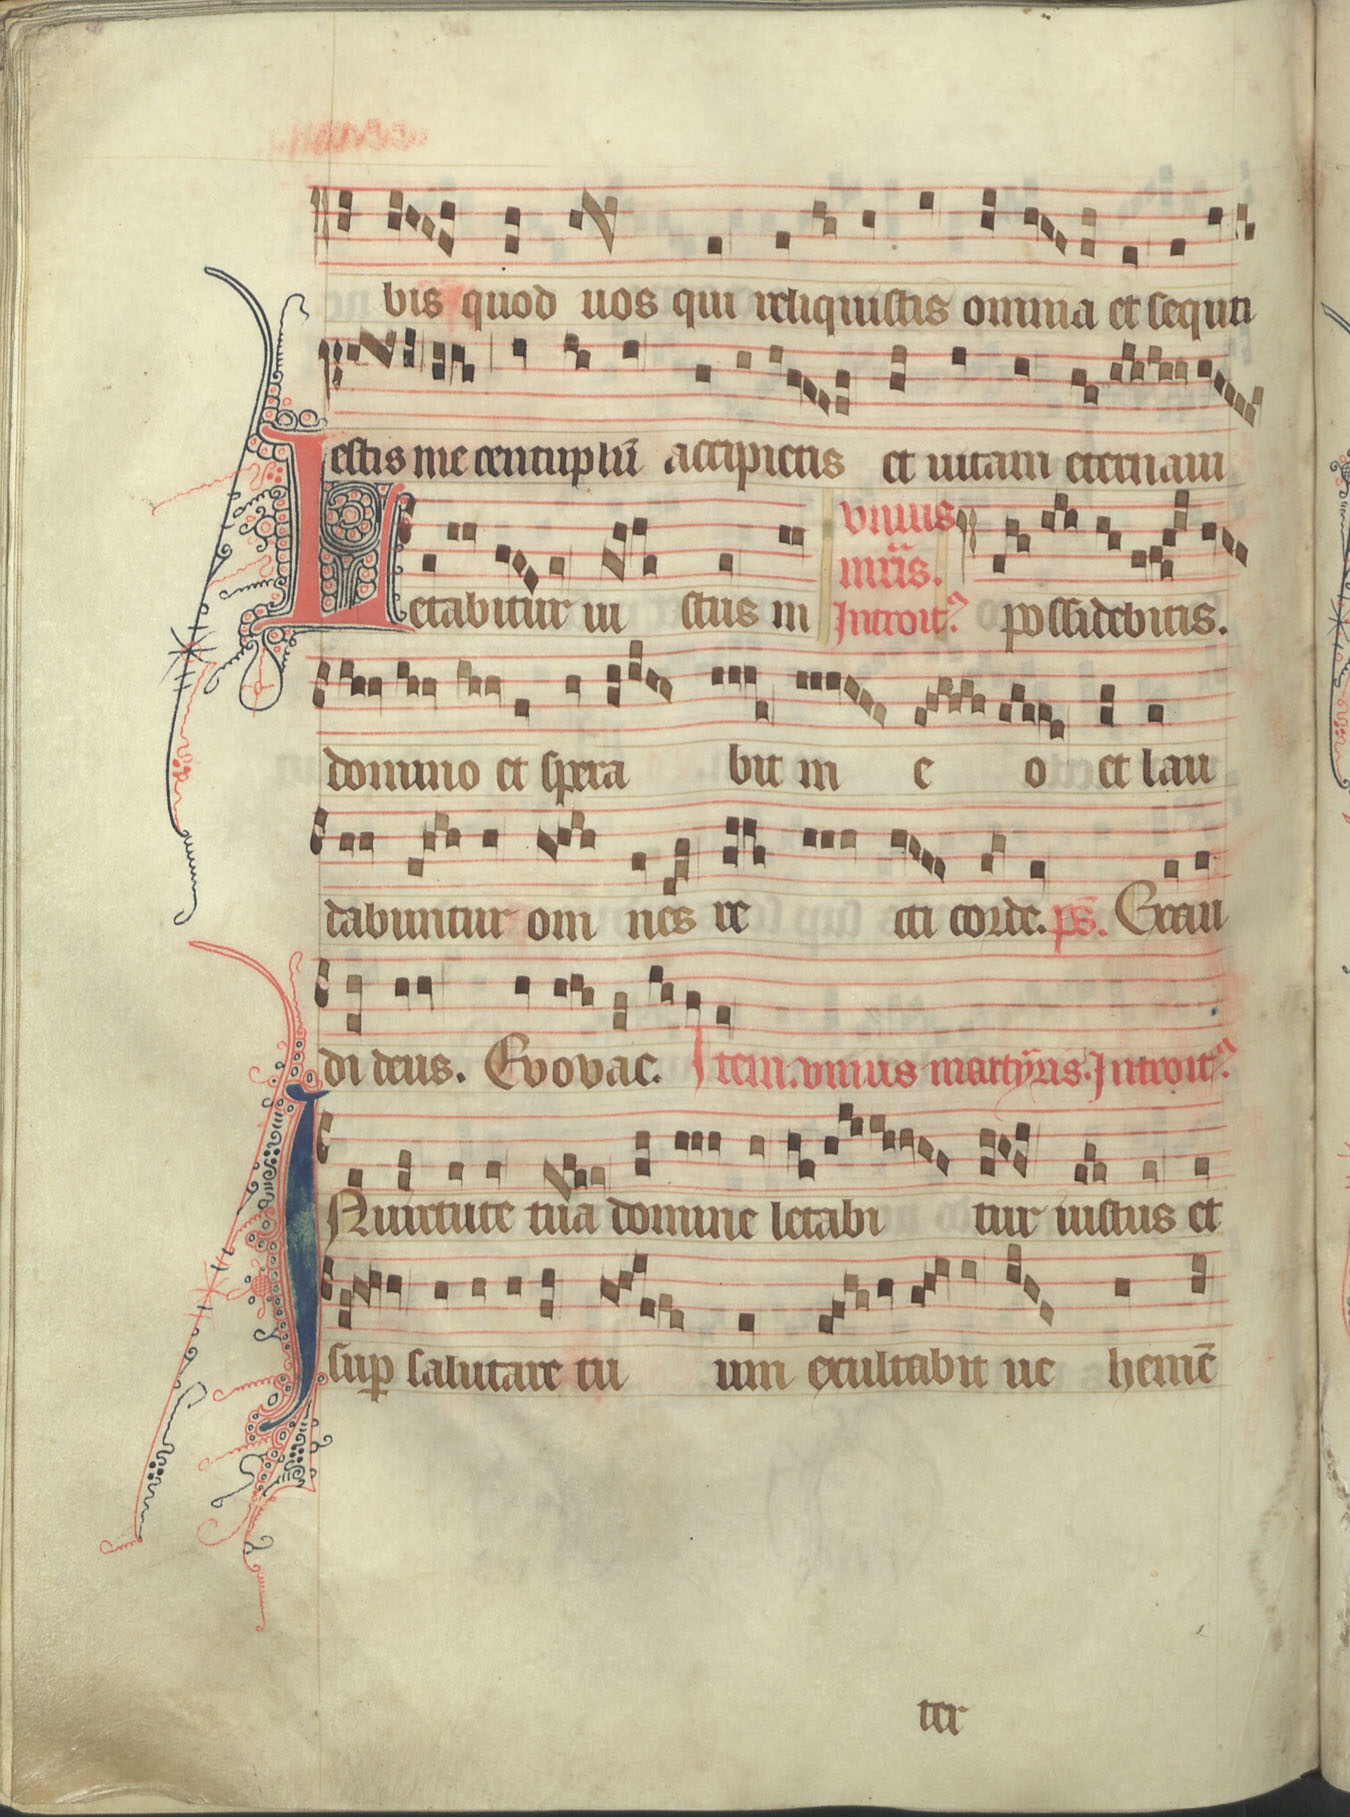 bis quod uos qui reliquistis omnia et sequti
estis me centuplū accipietis et uitam eternam
vnius
mr̄is.
Letabitur iu stus in Introit⁹ possidebitis.
domino et spera bit in e o et lau
dabuntur om nes re cti corde. ps̄. Exau
di deus. Evovae. Item. vnius martyris. Introit⁹.
IN uirtute tua domine letabi tur iustus et
suꝑ salutare tu um exultabit ue hemē
ter